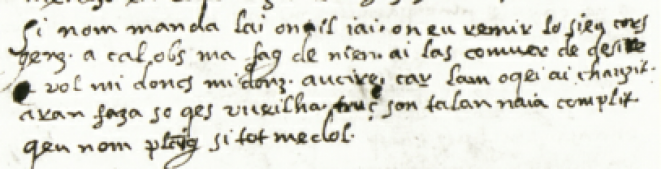 Si nom manda lai on il iai. on eu remir lo sieu cors
genz. a cal obs ma fag de nien. ai las conuer de desire
vol mi doncs midonz. aucire. car lam oqei ai chauzit.
aran faza so qes uueilha. son talan naia complit
qeu nom planc si tot me dol.